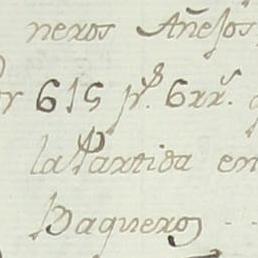 neros Añejos
or 615 p.s 6 rr.s
la Partida en
Baqueros